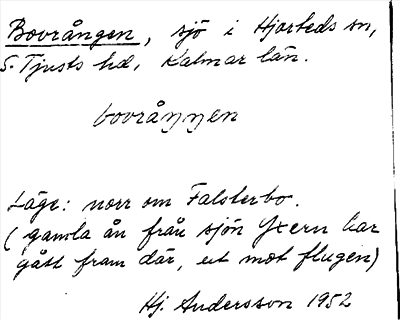 Bovrången, sjö i Hjorteds sn,
S. Tjusts hd, Kalmar län.
bovråŋŋen
Läge: norr om Falsterbo.
(gamla ån från sjön Yxern har
gått fram där, ut mot flugen)
Hj. Andersson 1952